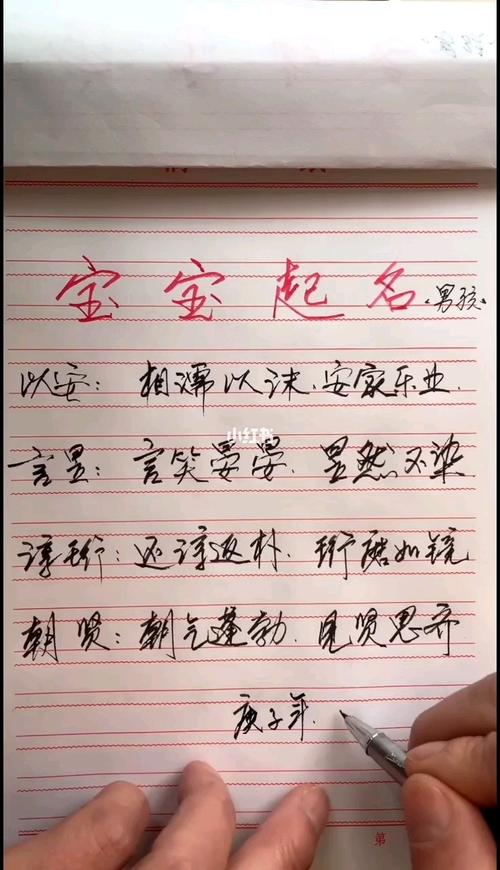 宝宝起名·男孩·
以安：相濡以沫、安家乐业.
小红书
言昱：言笑晏晏.昱然不染
淳珩：还淳返朴.珩磨如镜
朝贤：朝气蓬勃.见贤思齐
庚子年.
第